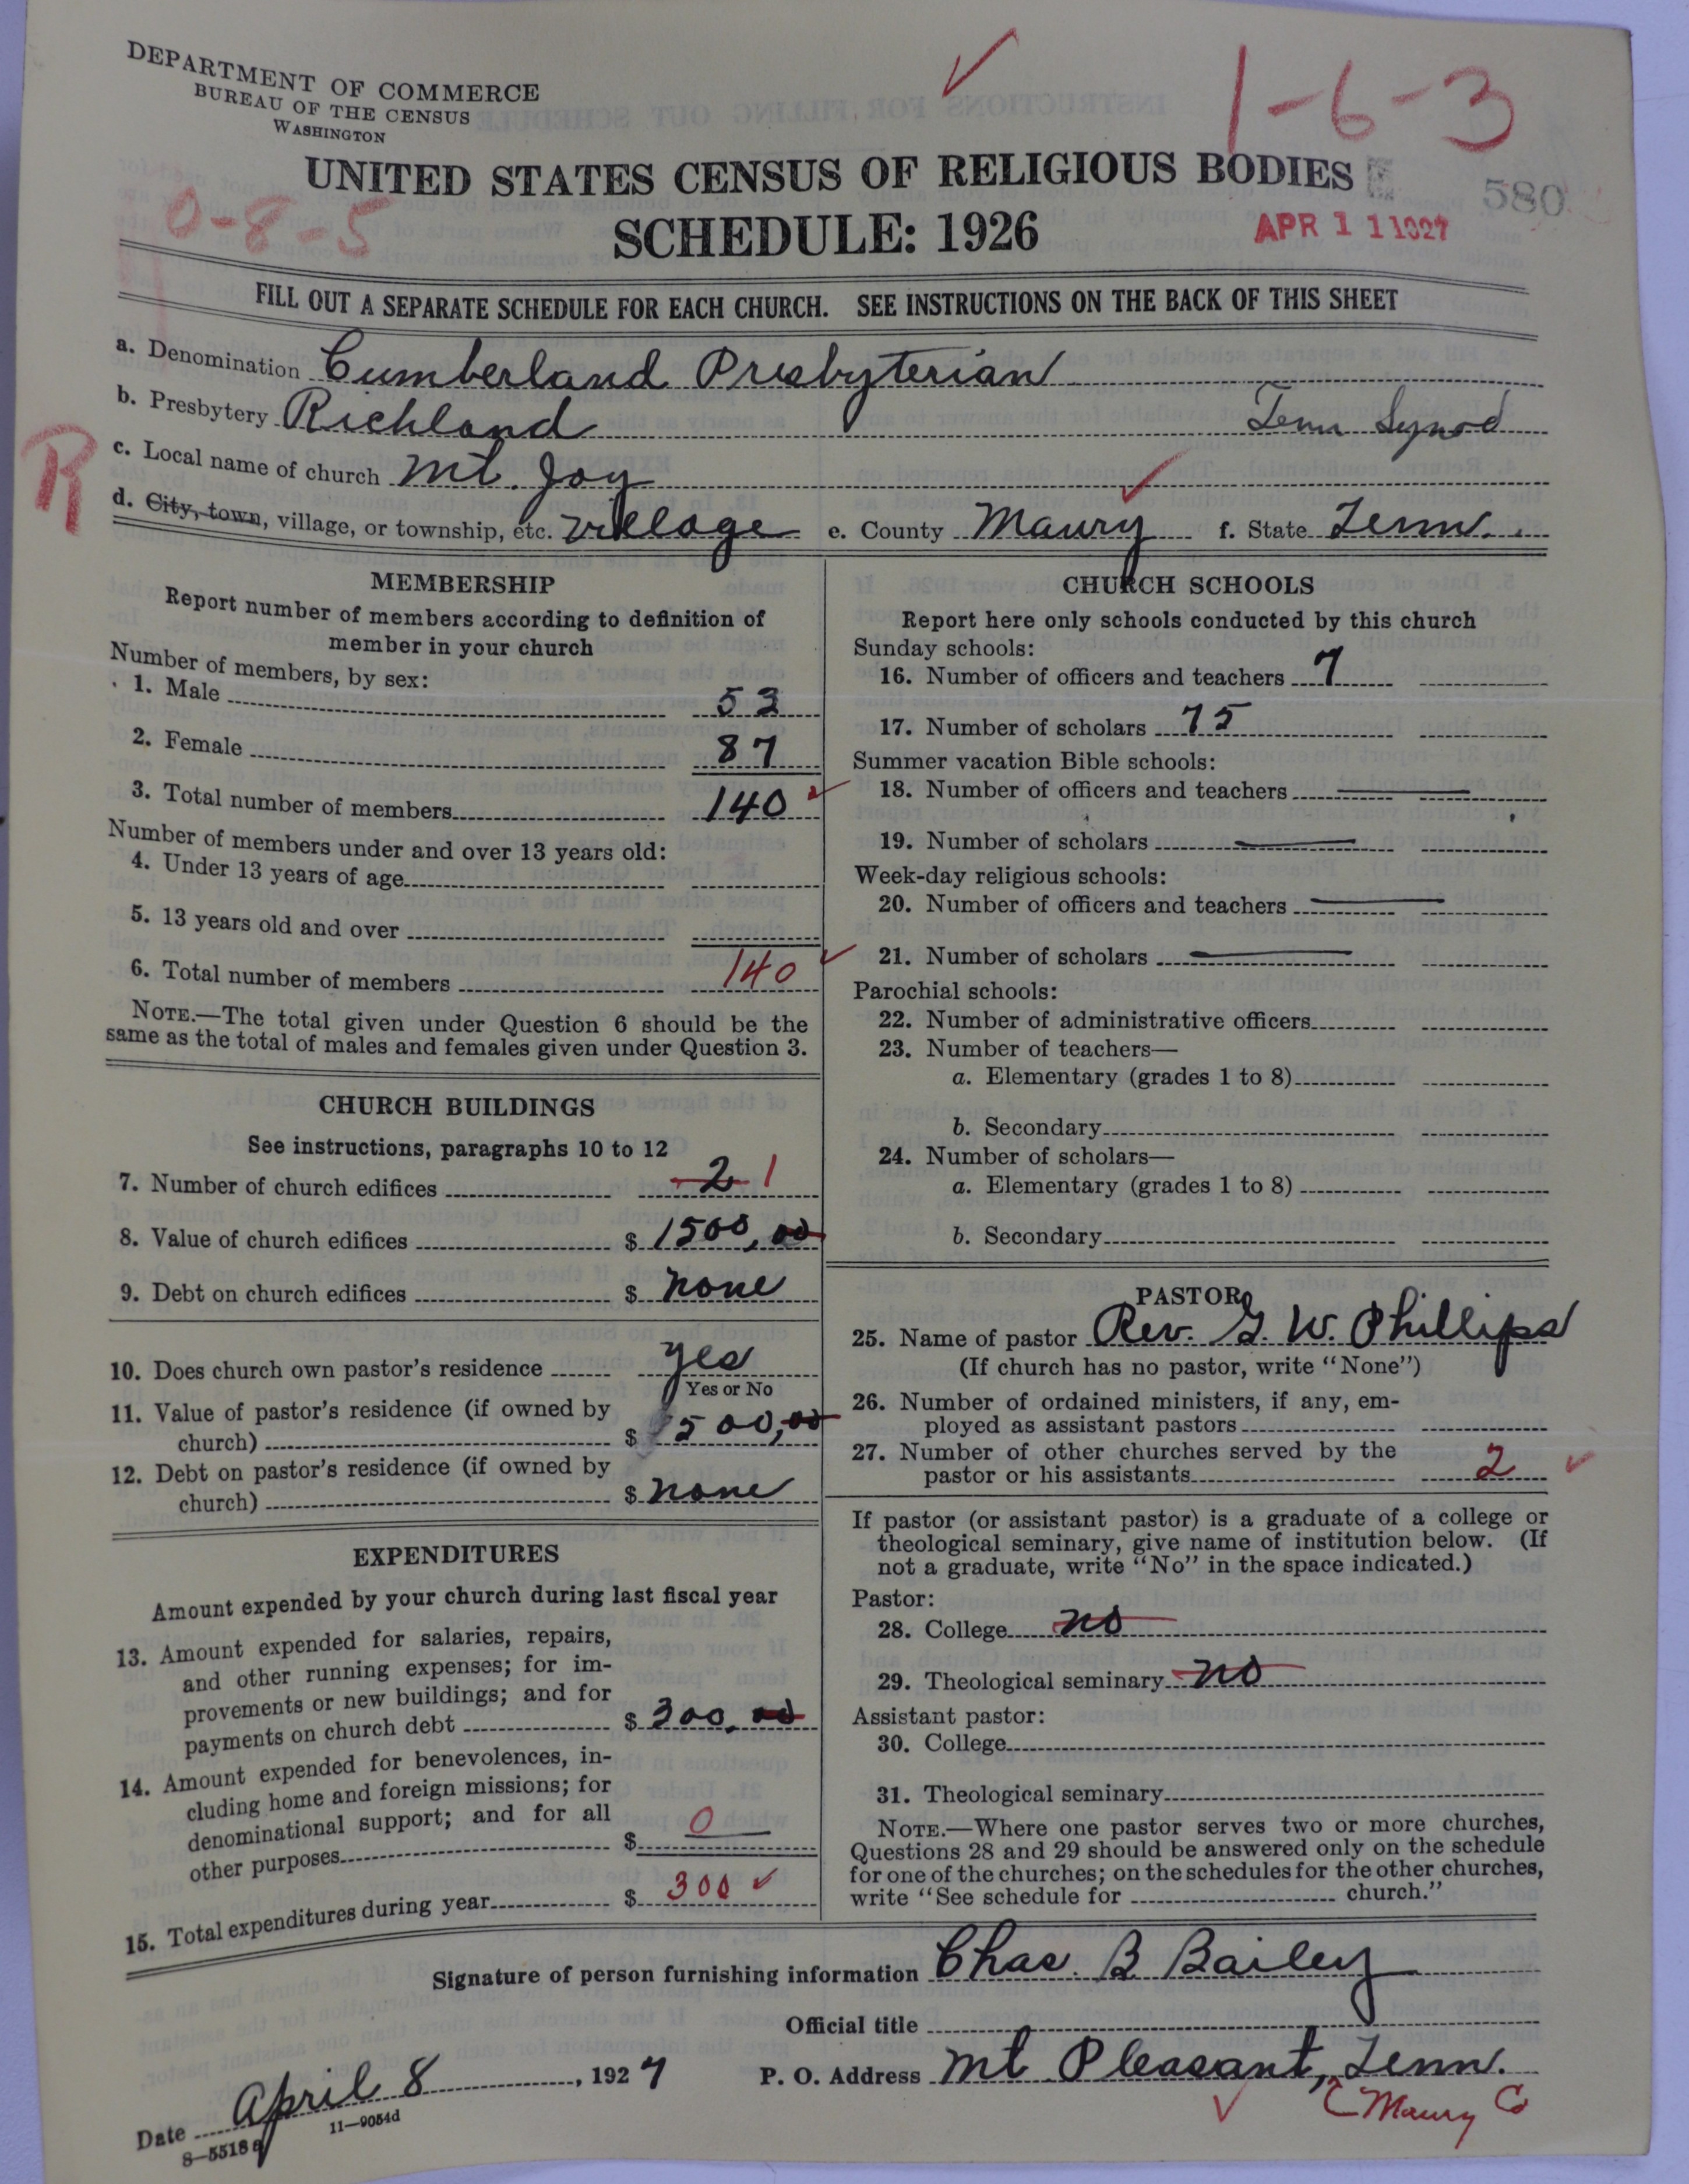 DEPARTMENT OF COMMERCE
BUREAU OF THE CENSUS
WASHINGTON
1-6-3
UNITED STATES CENSUS OF RELIGIOUS BODIES
580
0-8-5
SCHEDULE: 1926
APR 11 1927
FILL OUT A SEPARATE SCHEDULE FOR EACH CHURCH. SEE INSTRUCTIONS ON THE BACK OF THIS SHEET
a. Denomination Cumberland Presbyterian
b. Presbytery Richland Tenn Synod
R
c. Local name of church Mt. Joy
d. City, town, village, or township, etc. Village e. County Maury f. State Tenn.
MEMBERSHIP
Report number of members according to definition of
member in your church
Number of members, by sex:
1. Male 53
2. Female 87
3. Total number of members 140
Number of members under and over 13 years old:
4. Under 13 years of age
5. 13 years old and over
6. Total number of members 140
NOTE.—The total given under Question 6 should be the
same as the total of males and females given under Question 3.
CHURCH BUILDINGS
See instructions, paragraphs 10 to 12
7. Number of church edifices 2 1
8. Value of church edifices $ 1500,00
9. Debt on church edifices $ none
10. Does church own pastor's residence yes
Yes or No
11. Value of pastor's residence (if owned by
church) $ 500,00
12. Debt on pastor's residence (if owned by
church) $ none
EXPENDITURES
Amount expended by your church during last fiscal year
13. Amount expended for salaries, repairs,
and other running expenses; for im-
provements or new buildings; and for
payments on church debt $ 300,00
14. Amount expended for benevolences, in-
cluding home and foreign missions; for
denominational support; and for all
other purposes $ 0
15. Total expenditures during year $ 300
CHURCH SCHOOLS
Report here only schools conducted by this church
Sunday schools:
16. Number of officers and teachers 7
17. Number of scholars 75
Summer vacation Bible schools:
18. Number of officers and teachers
19. Number of scholars
Week-day religious schools:
20. Number of officers and teachers
21. Number of scholars
Parochial schools:
22. Number of administrative officers
23. Number of teachers—
a. Elementary (grades 1 to 8)
b. Secondary
24. Number of scholars—
a. Elementary (grades 1 to 8)
b. Secondary
PASTOR
25. Name of pastor Rev. G. W. Phillips
(If church has no pastor, write "None")
26. Number of ordained ministers, if any, em-
ployed as assistant pastors
27. Number of other churches served by the
pastor or his assistants 2
If pastor (or assistant pastor) is a graduate of a college or
theological seminary, give name of institution below. (If
not a graduate, write "No" in the space indicated.)
Pastor:
28. College no
29. Theological seminary no
Assistant pastor:
30. College
31. Theological seminary
NOTE.—Where one pastor serves two or more churches,
Questions 28 and 29 should be answered only on the schedule
for one of the churches; on the schedules for the other churches,
write "See schedule for church."
Signature of person furnishing information Chas. B Bailey
Official title
Date April 8, 1927 P. O. Address Mt Pleasant, Tenn.
(Maury Co
8—5518a 11—9054d